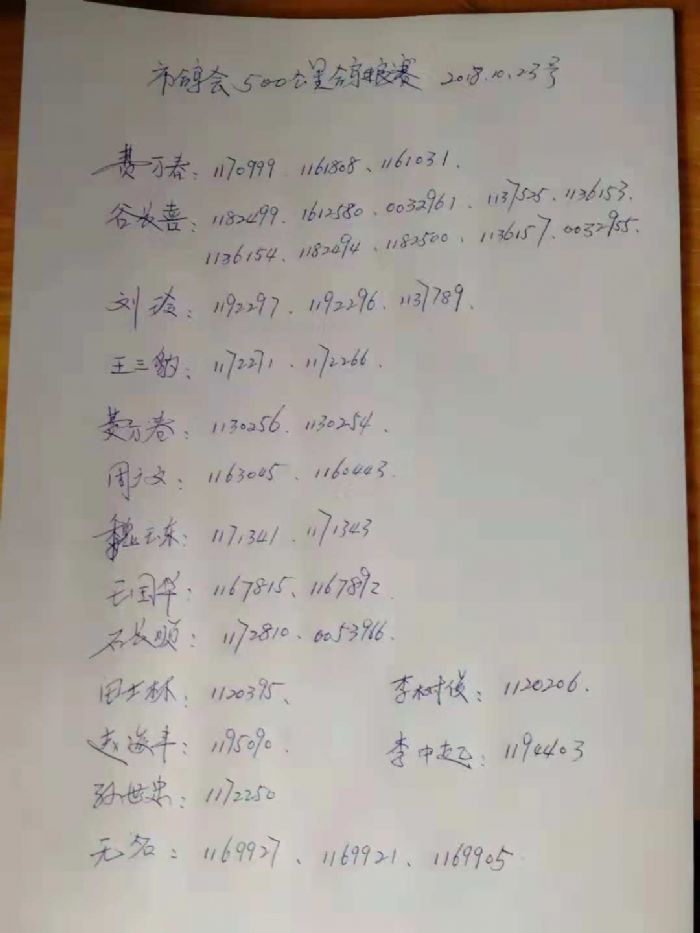 市鸽会500公里鸽粮赛 2018.10.23号
费万春: 1170999、1161808、1161031.
谷长喜: 1182499、1612580、0032961、1137525、1136153.
1136154、1182494、1182500、1136157、0032955.
刘玲: 1192297、1192296、1137789、
王三豹: 1172271、1172266.
万春: 1130256、1130254、
周文: 1163045、1160443.
魏玉东: 1171341、1171343
王国华: 1167815、1167892
石长顺: 1172810、0053966.
田士林: 1120395、 李树俊: 1120206.
赵海丰: 1195090. 李中起: 1194403
孙世忠: 1172250
无名: 1169927、1169921、1169905